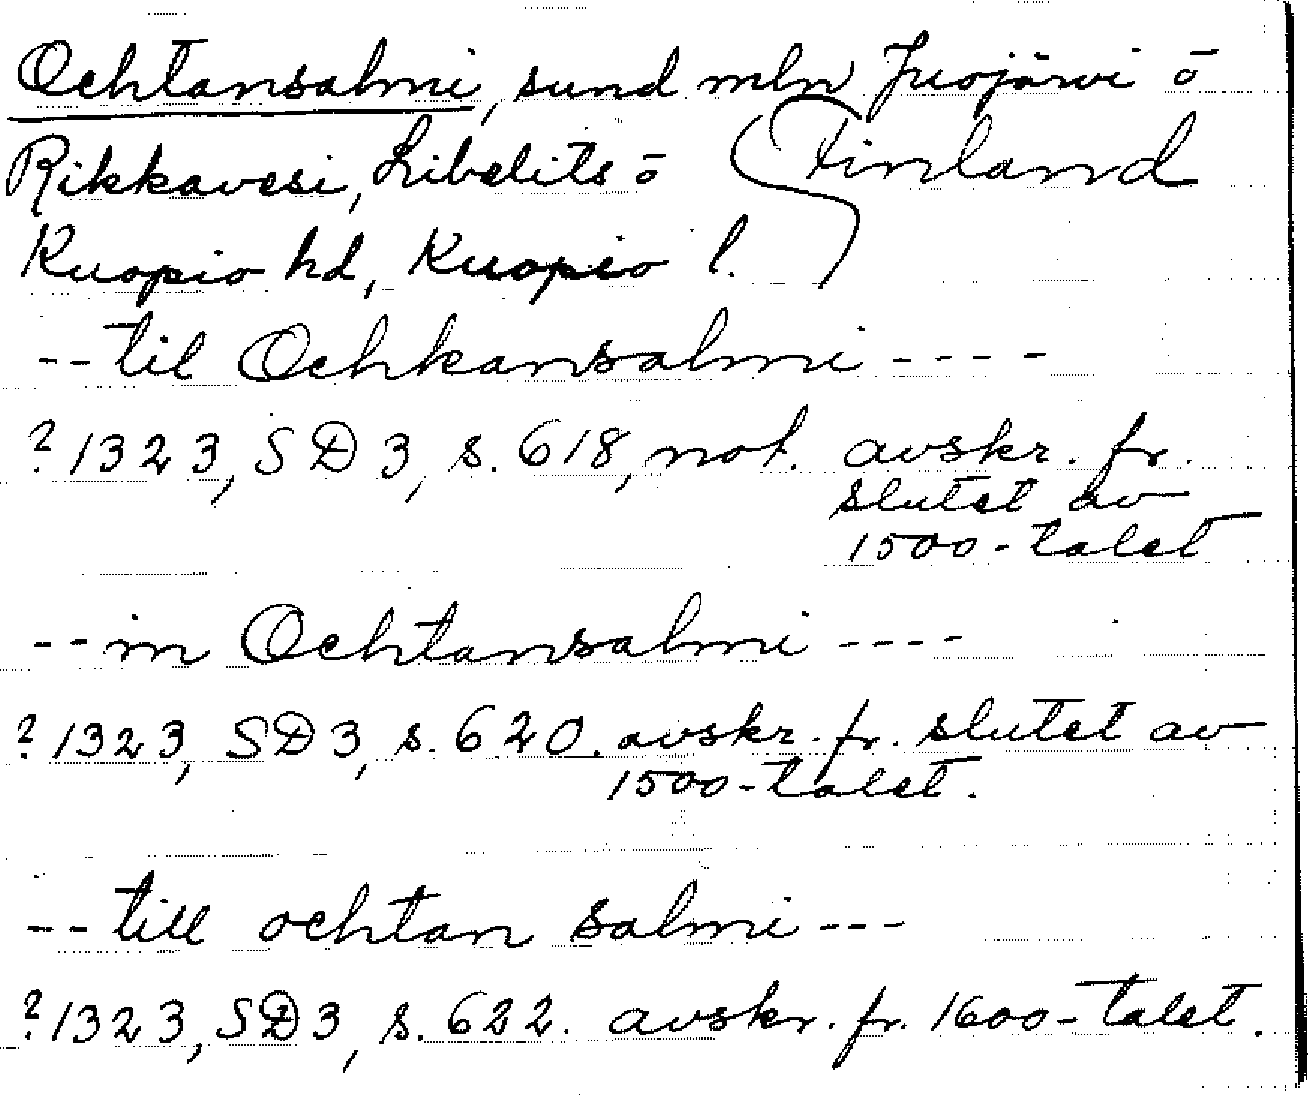 Ochtansalmi, sund mln Juojärvi o
Rikkavesi, Libelits o Finland
Kuopio hd, Kuopio l.
-- til Ochkansalmi ----
? 1323, SD 3, s. 618, not. avskr. fr.
slutet av
1500-talet
-- in Ochtansalmi ----
? 1323, SD 3, s. 620. avskr. fr. slutet av
1500-talet.
-- till ochtan salmi ---
? 1323, SD 3, s. 622. avskr. fr. 1600-talet.